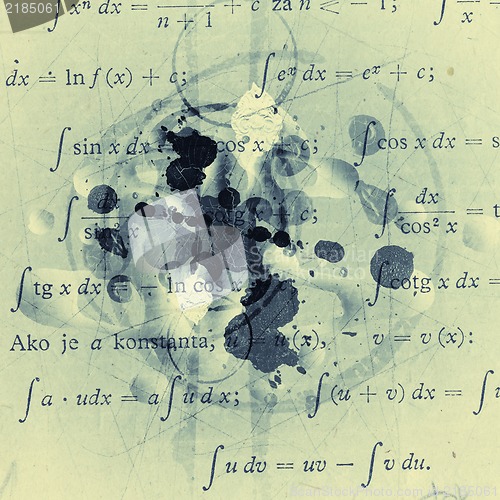 2185061
∫ xⁿ dx = / n + 1 + c za n < − 1; ∫ / x
dx = ln f (x) + c; ∫ eˣ dx = eˣ + c;
∫ sin x dx cos x + c; ∫ cos x dx = s
∫ dx / sin² x cotg x + c; ∫ dx / cos² x = t
∫ tg x dx = − ln cos x ∫ cotg x dx
Ako je a konstanta, u = u (x), v = v (x):
∫ a · udx = a ∫ u d x; ∫ (u + v) dx = ∫
∫ u dv = uv − ∫ v du.